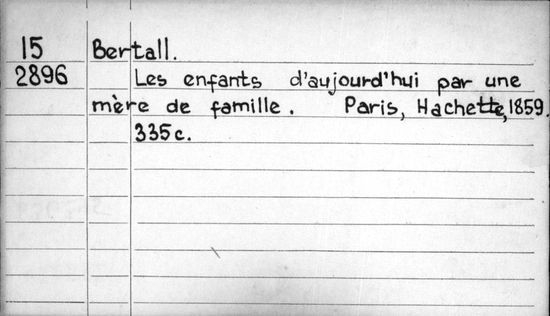 15 Bertall.
2896 Les enfants d'aujourd'hui par une
mère de famille. Paris, Hachette, 1859.
335c.